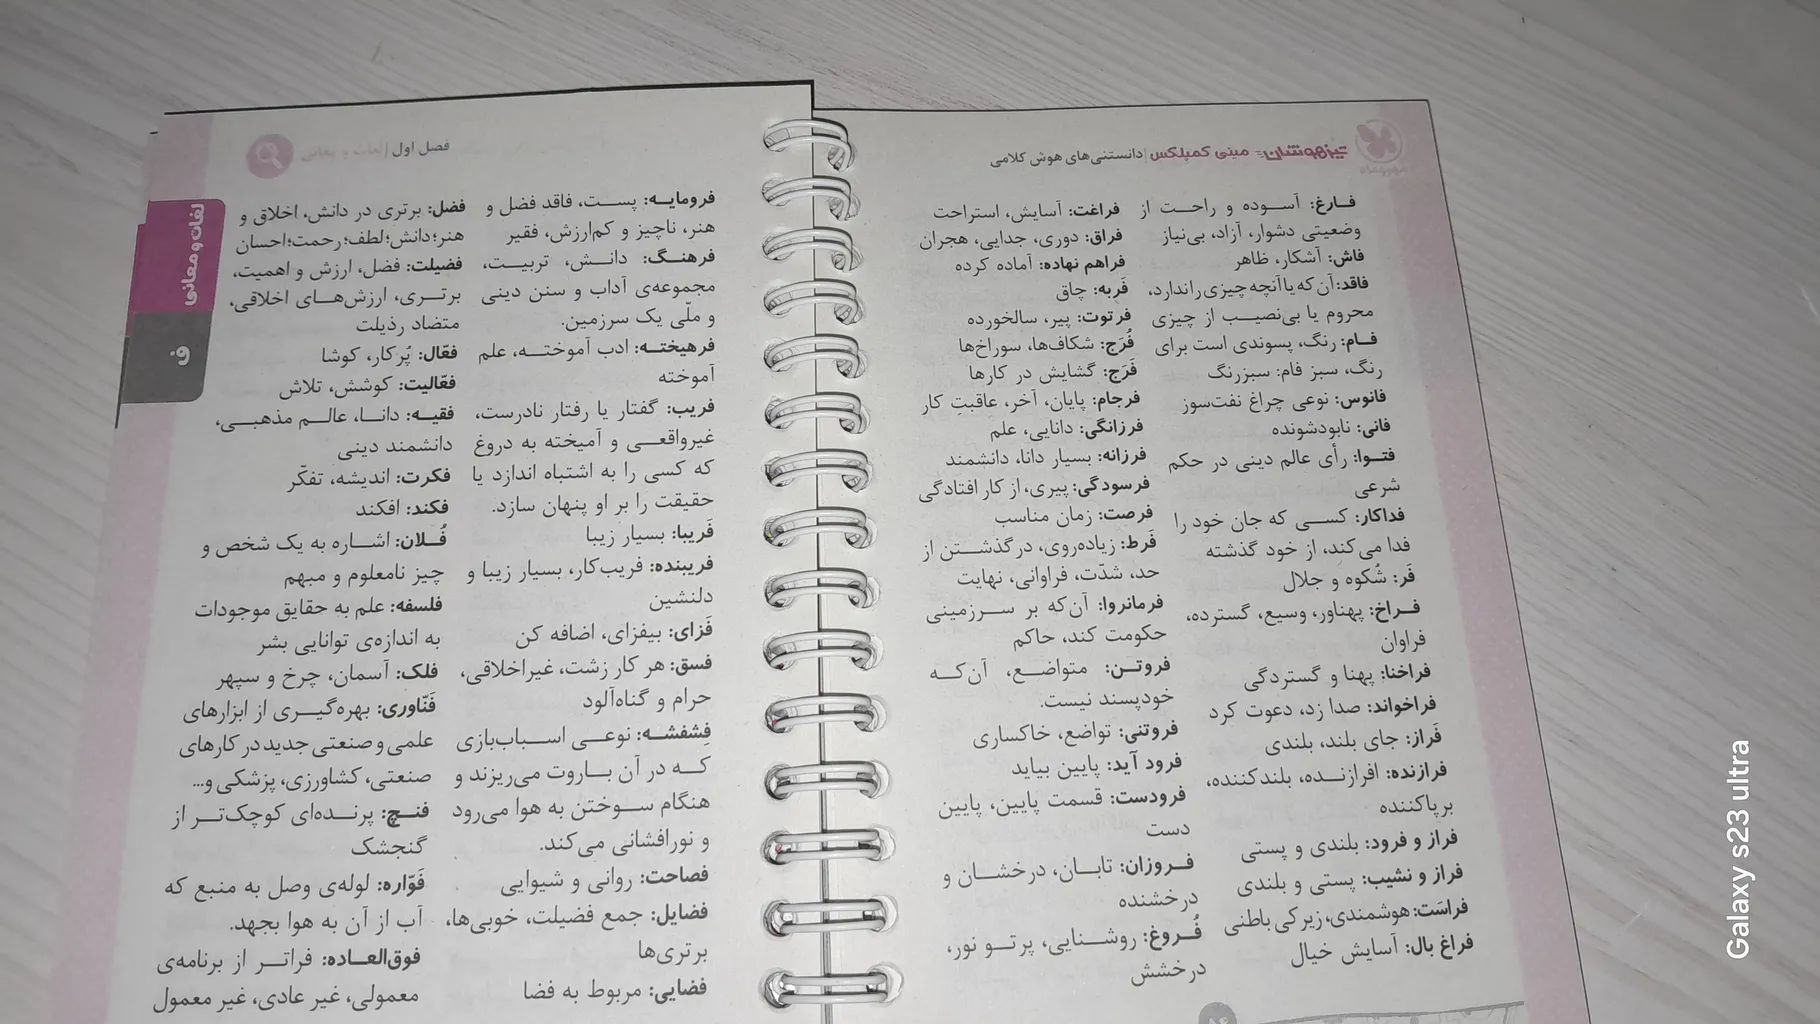 تیزهوشان مینی کمپلکس | دانستنی‌های هوش کلامی
فارغ: آسوده و راحت از
وضعیتی دشوار، آزاد، بی‌نیاز
فاش: آشکار، ظاهر
فاقد: آن که یا آنچه چیزی را ندارد،
محروم یا بی‌نصیب از چیزی
فام: رنگ، پسوندی است برای
رنگ، سبز فام: سبزرنگ
فانوس: نوعی چراغ نفت‌سوز
فانی: نابودشونده
فتوا: رأی عالم دینی در حکم
شرعی
فداکار: کسی که جان خود را
فدا می‌کند، از خود گذشته
فَر: شُکوه و جلال
فراخ: پهناور، وسیع، گسترده،
فراوان
فراخنا: پهنا و گستردگی
فراخواند: صدا زد، دعوت کرد
فَراز: جای بلند، بلندی
فرازنده: افرازنده، بلندکننده،
برپاکننده
فراز و فرود: بلندی و پستی
فراز و نشیب: پستی و بلندی
فراسَت: هوشمندی، زیرکی باطنی
فراغ بال: آسایش خیال
فراغت: آسایش، استراحت
فراق: دوری، جدایی، هجران
فراهم نهاده: آماده کرده
فَربه: چاق
فرتوت: پیر، سالخورده
فُرَج: شکاف‌ها، سوراخ‌ها
فَرَج: گشایش در کارها
فرجام: پایان، آخر، عاقبتِ کار
فرزانگی: دانایی، علم
فرزانه: بسیار دانا، دانشمند
فرسودگی: پیری، از کار افتادگی
فرصت: زمان مناسب
فَرط: زیاده‌روی، درگذشتن از
حد، شدّت، فراوانی، نهایت
فرمانروا: آن‌که بر سرزمینی
حکومت کند، حاکم
فروتن: متواضع، آن‌که
خودپسند نیست.
فروتنی: تواضع، خاکساری
فرود آید: پایین بیاید
فرودست: قسمت پایین، پایین
دست
فروزان: تابان، درخشان و
درخشنده
فُروغ: روشنایی، پرتو نور،
درخشش
فصل اول | لغات و معانی
فرومایه: پست، فاقد فضل و
هنر، ناچیز و کم‌ارزش، فقیر
فرهنگ: دانش، تربیت،
مجموعه‌ی آداب و سنن دینی
و ملّی یک سرزمین.
فرهیخته: ادب آموخته، علم
آموخته
فریب: گفتار یا رفتار نادرست،
غیرواقعی و آمیخته به دروغ
که کسی را به اشتباه اندازد یا
حقیقت را بر او پنهان سازد.
فَریبا: بسیار زیبا
فریبنده: فریب‌کار، بسیار زیبا و
دلنشین
فَزای: بیفزای، اضافه کن
فسق: هر کار زشت، غیراخلاقی،
حرام و گناه‌آلود
فِشفشه: نوعی اسباب‌بازی
که در آن باروت می‌ریزند و
هنگام سوختن به هوا می‌رود
و نورافشانی می‌کند.
فصاحت: روانی و شیوایی
فضایل: جمع فضیلت، خوبی‌ها،
برتری‌ها
فضایی: مربوط به فضا
فضل: برتری در دانش، اخلاق و
هنر؛دانش؛لطف؛رحمت؛احسان
فضیلت: فضل، ارزش و اهمیت،
برتری، ارزش‌های اخلاقی،
متضاد رذیلت
فعّال: پُرکار، کوشا
فعّالیت: کوشش، تلاش
فقیه: دانا، عالم مذهبی،
دانشمند دینی
فکرت: اندیشه، تفکّر
فکند: افکند
فُلان: اشاره به یک شخص و
چیز نامعلوم و مبهم
فلسفه: علم به حقایق موجودات
به اندازه‌ی توانایی بشر
فلک: آسمان، چرخ و سپهر
فَنّاوری: بهره‌گیری از ابزارهای
علمی و صنعتی جدید در کارهای
صنعتی، کشاورزی، پزشکی و...
فنچ: پرنده‌ای کوچک‌تر از
گنجشک
فَوّاره: لوله‌ی وصل به منبع که
آب از آن به هوا بجهد.
فوق‌العاده: فراتر از برنامه‌ی
معمولی، غیر عادی، غیر معمول
لغات و معانی
ف
Galaxy s23 ultra